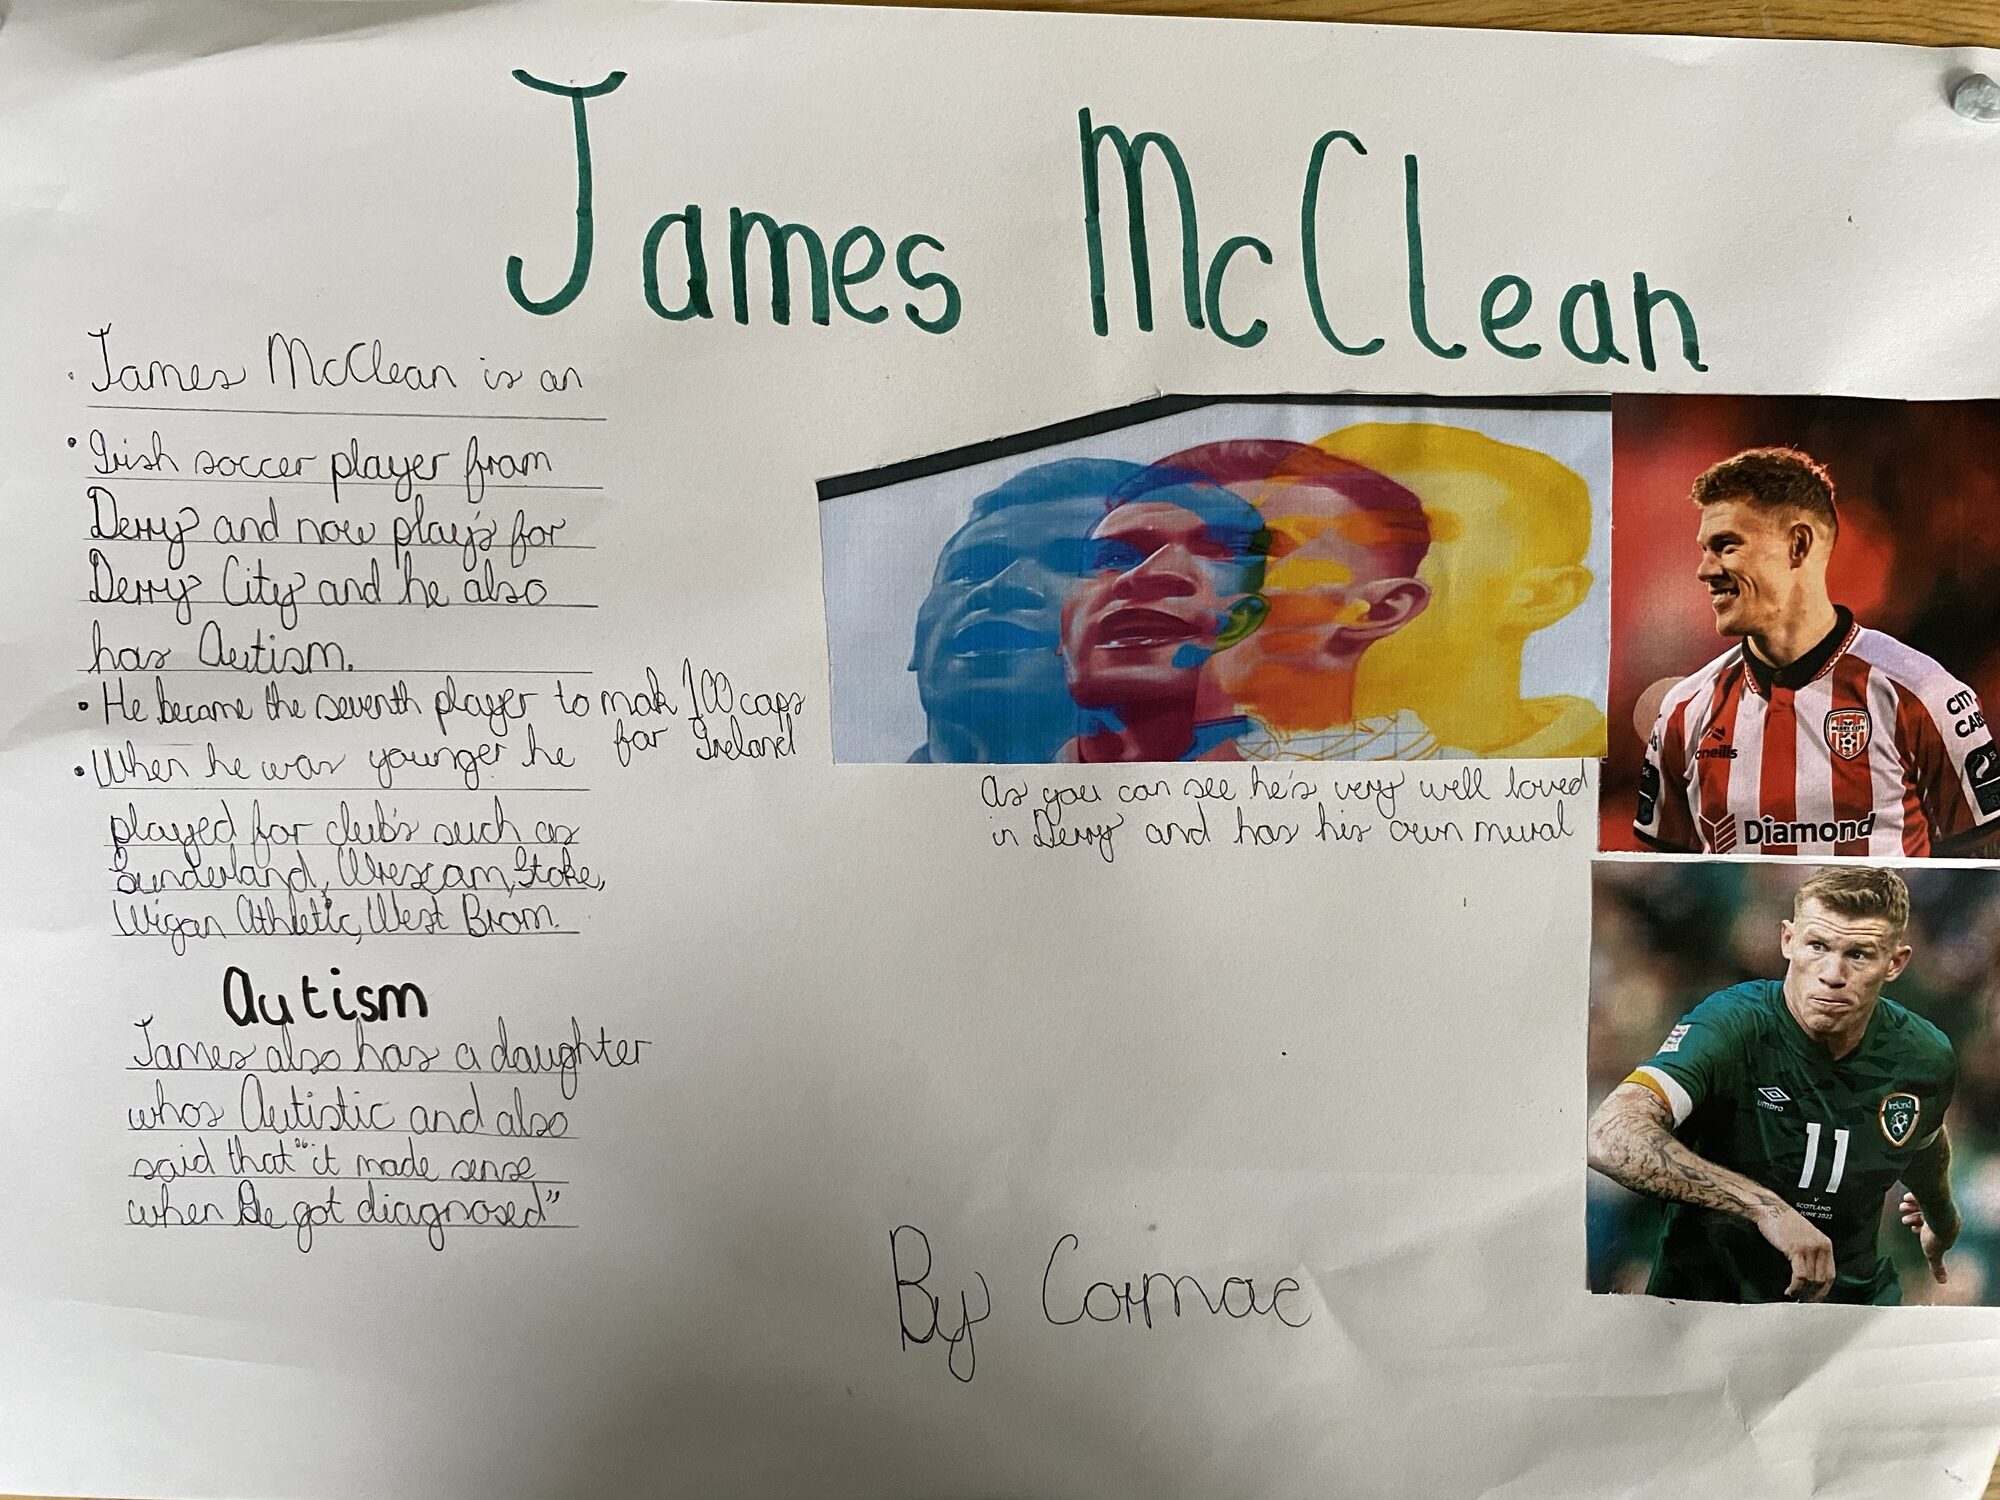 James McClean
· James McClean is an
· Irish soccer player from
Derry and now play's for
Derry City and he also
has Autism.
• He became the seventh player to mak 100 caps
for Ireland
• When he was younger he
played for club's such as
Sunderland, Wrexcam, Stoke,
Wigan Athletic, West Brom.
Autism
James also has a daughter
whos Autistic and also
said that "it made sense
when he got diagnosed"
As you can see he's very well loved
in Derry and has his own mural
By Cormac
oneills
CITY
CAB
Diamond
umbro
Ireland
11
V
SCOTLAND
JUNE 2022